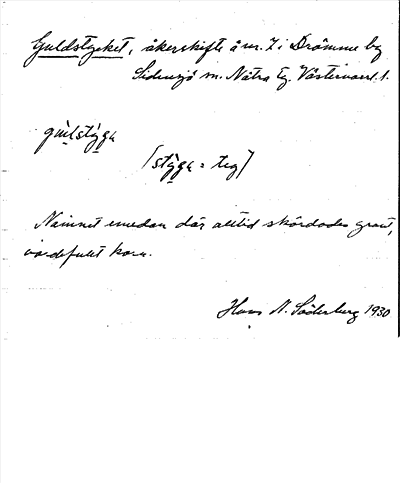 Guldstycket, åkerskifte å nr. 7 i Drömme by
Sidensjö sn. Nätra tg. Västernorrl. l.
gulstyga
[styga = teg]
Namnet emedan där alltid skördades grant,
värdefullt korn.
Hans N. Söderberg 1930